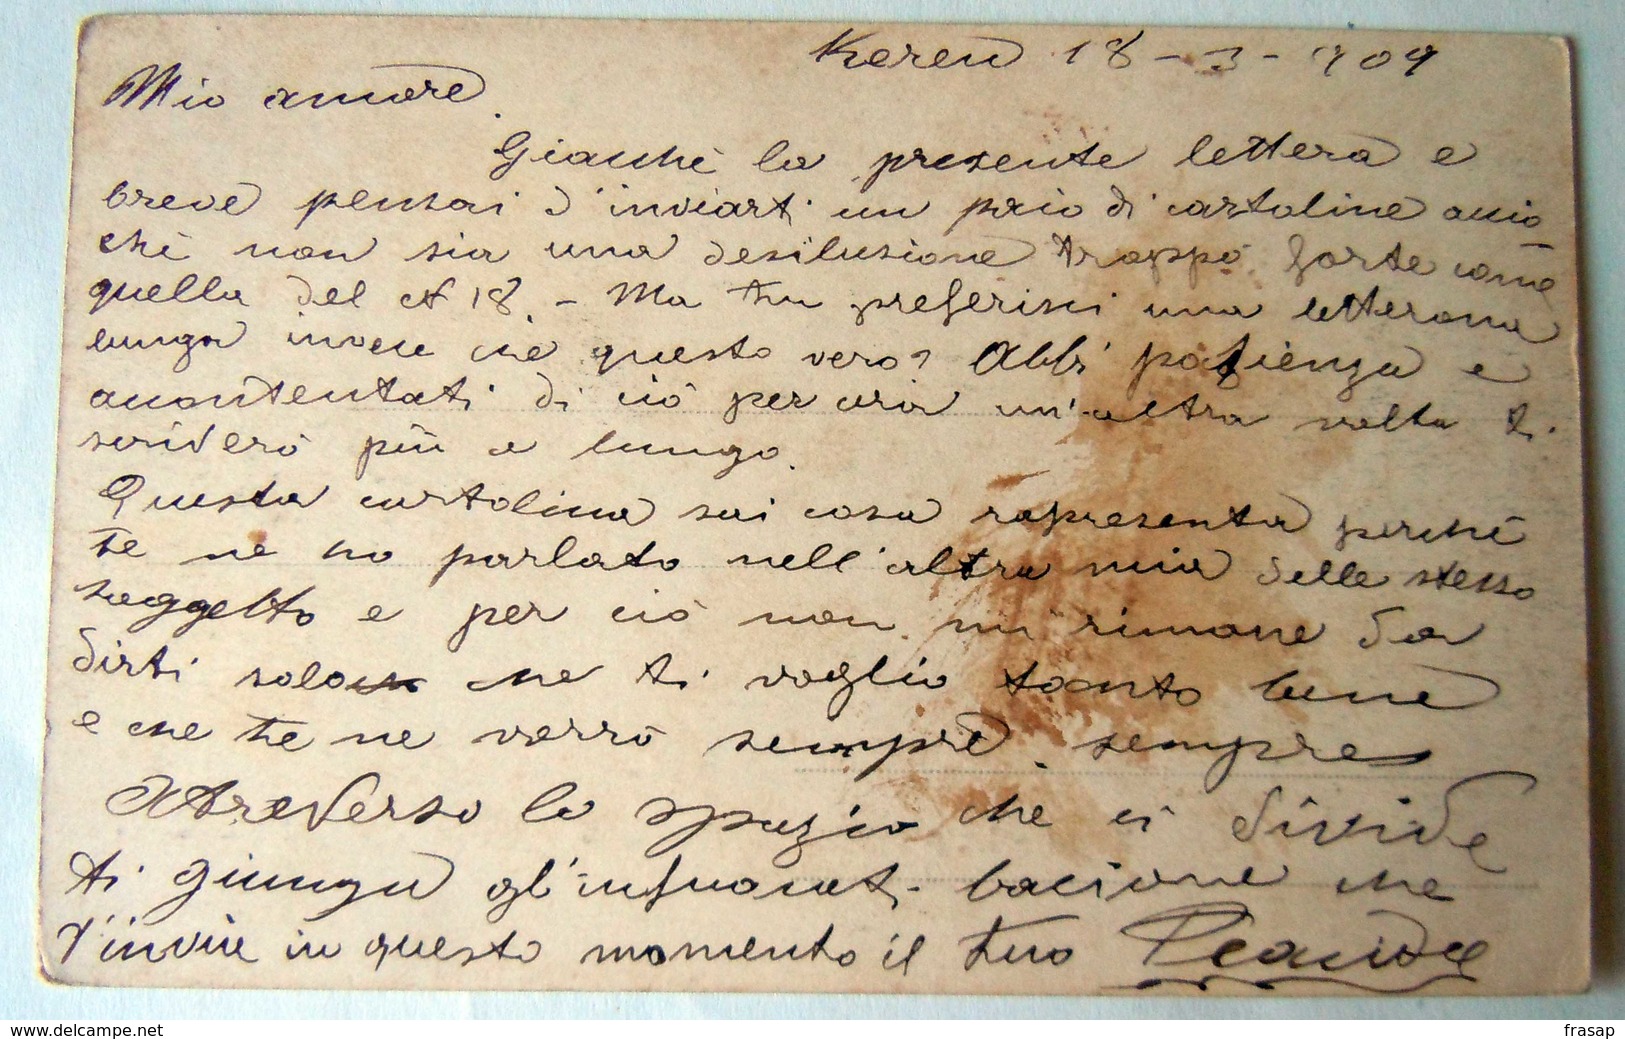 Keren 18 - 3 - 909
Mio amore.
Giacchè la presente lettera e
breve pensai d'inviarti un paio di cartoline accio
chè non sia una desilusione troppo forte come
quella del N 18. - Ma tu preferisci una letterona
lunga invece che questo vero? Abbi pazienza e
accontentati di ciò per ora un'altra volta ti
scriverò più a lungo.
Questa cartolina sai cosa rapresenta perchè
te ne ho parlato nell'altra mia dello stesso
soggetto e per ciò non mi rimane da
dirti solo che ti voglio tanto bene
e che te ne vorrò sempre sempre
Atreverso lo spazio che ci divide
ti giunga gl'infuocati bacione che
t'invia in questo momento il tuo
www.delcampe.net
frasap